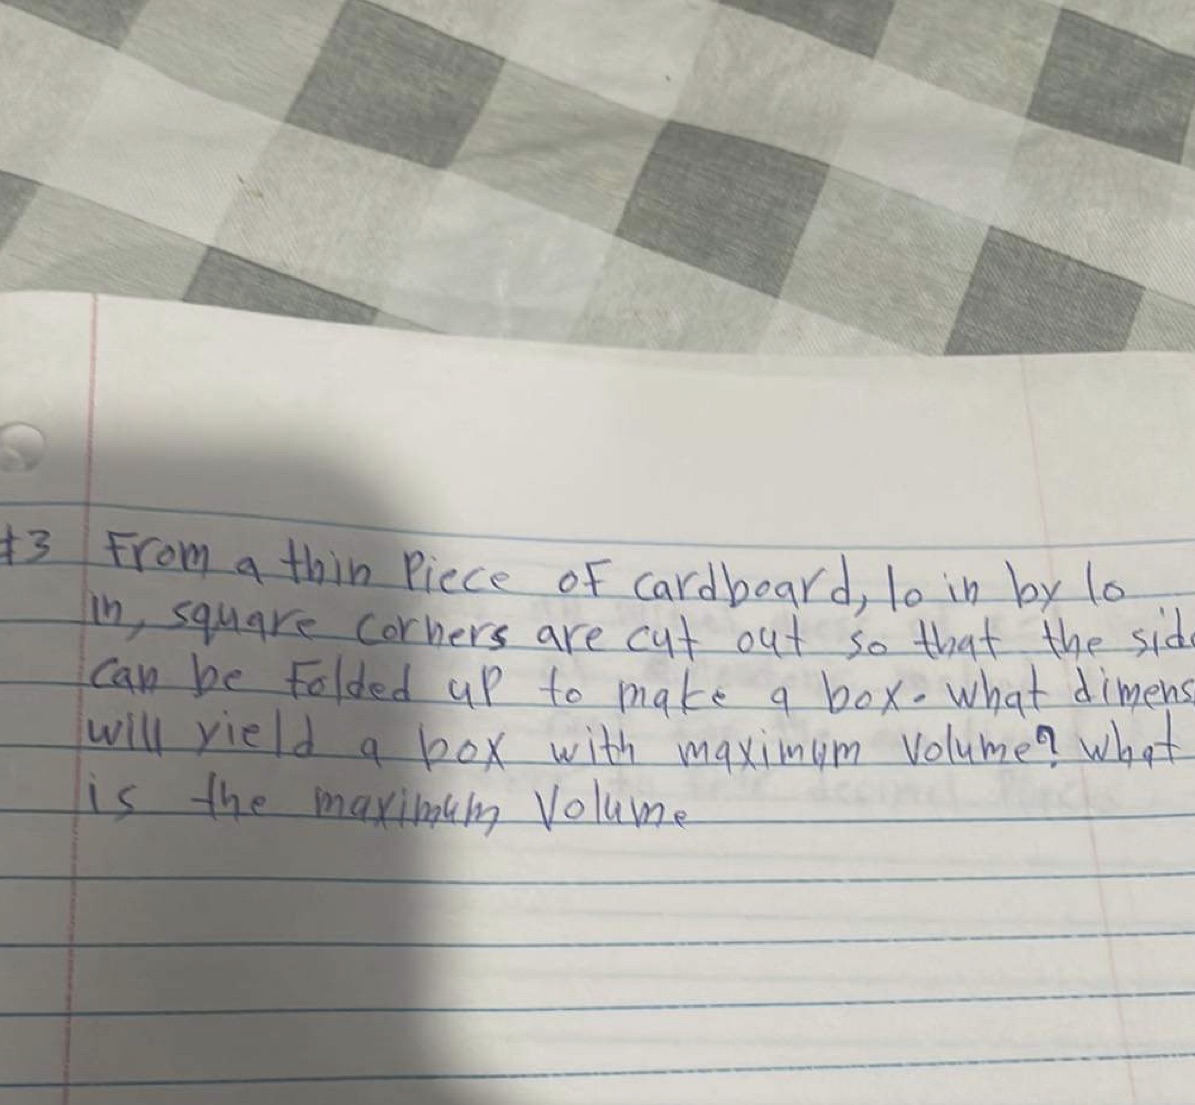 #3 From a thin Piece of cardboard, 10 in by 10
in, square corners are cut out so that the sid
can be Folded up to make a box. what dimens
will yield a box with maximum volume? what
is the maximum Volume